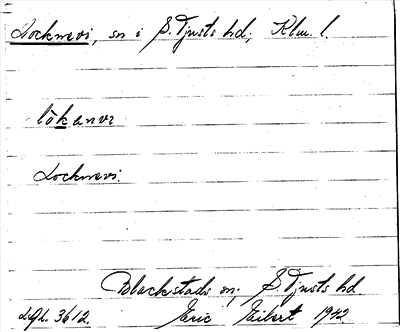 Locknevi, sn i S. Tjusts hd, Klm. l.
lòkanvi
Locknevi.
Blackstads sn; S. Tjusts hd
ULGL. 3612. Eric Eibert 1942